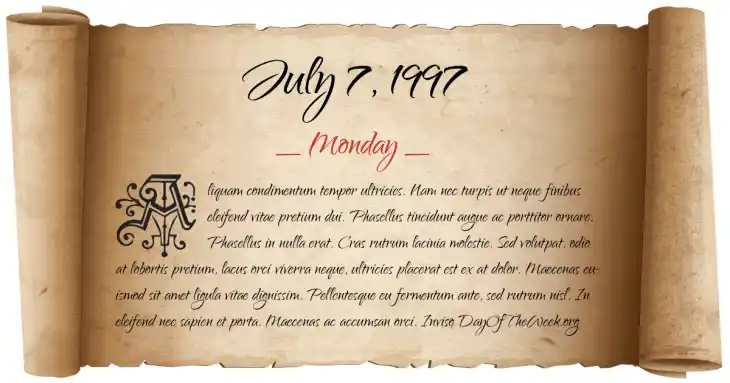 July 7, 1997
— Monday —
Aliquam condimentum tempor ultricies. Nam nec turpis ut neque finibus
eleifend vitae pretium dui. Phasellus tincidunt augue ac porttitor ornare.
Phasellus in nulla erat. Cras rutrum lacinia molestie. Sed volutpat, odio
at lobortis pretium, lacus orci viverra neque, ultricies placerat est ex at dolor. Maecenas eu-
ismod sit amet ligula vitae dignissim. Pellentesque eu fermentum ante, sed rutrum nisl. In
eleifend nec sapien et porta. Maecenas ac accumsan orci. Invisq DayOfTheWeek.org